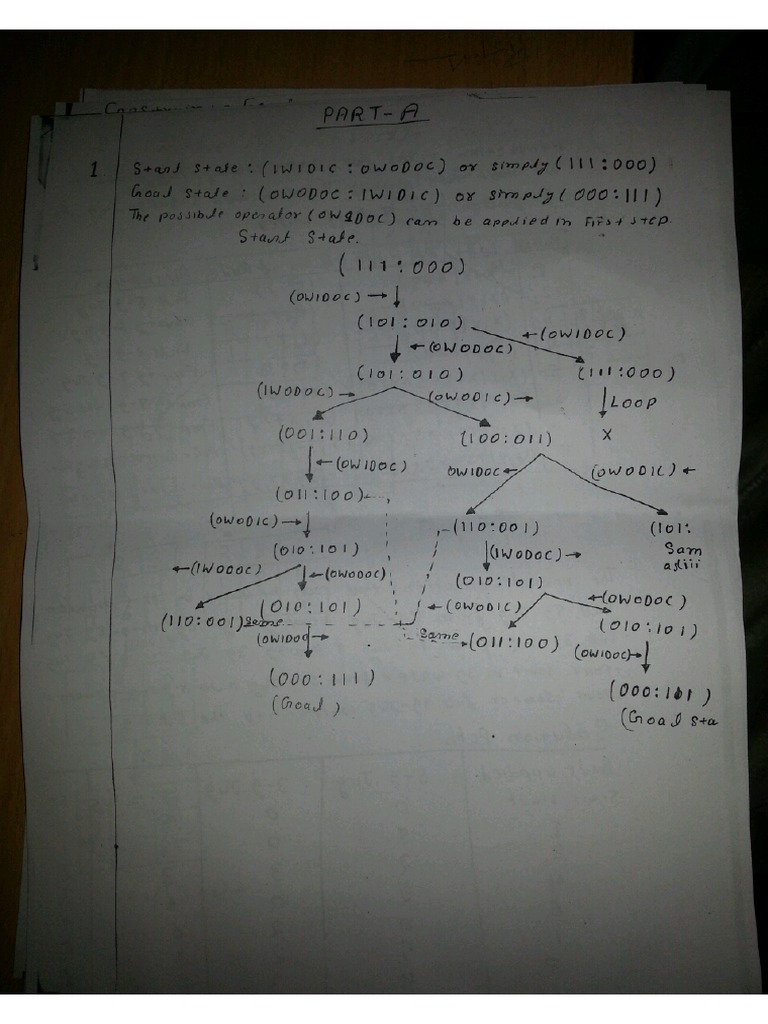 PART-A
1 Start state : (1W1D1C : 0W0D0C) or simply (111:000)
Goal state : (0W0D0C : 1W1D1C) or simply (000:111)
The possible operator (0W1D0C) can be applied in first step.
Start State.
(111:000)
(0W1D0C) →
(101:010) ←(0W1D0C)
←(0W0D0C)
(101:010) (111:000)
(1W0D0C) → (0W0D1C) → LOOP
(001:110) (100:011) X
←(0W1D0C) 0W1D0C ← (0W0D1C) ←
(011:100)
(0W0D1C) → (110:001) (101:
(010:101) (1W0D0C) → Sam
←(1W0D0C) ←(0W0D0C) (010:101)
(110:001) same (010:101) ←(0W0D1C) ←(0W0D0C)
(0W1D0C → Same (011:100) (010:101)
(0W1D0C) →
(000:111) (000:111)
(Goal) (Goal sta